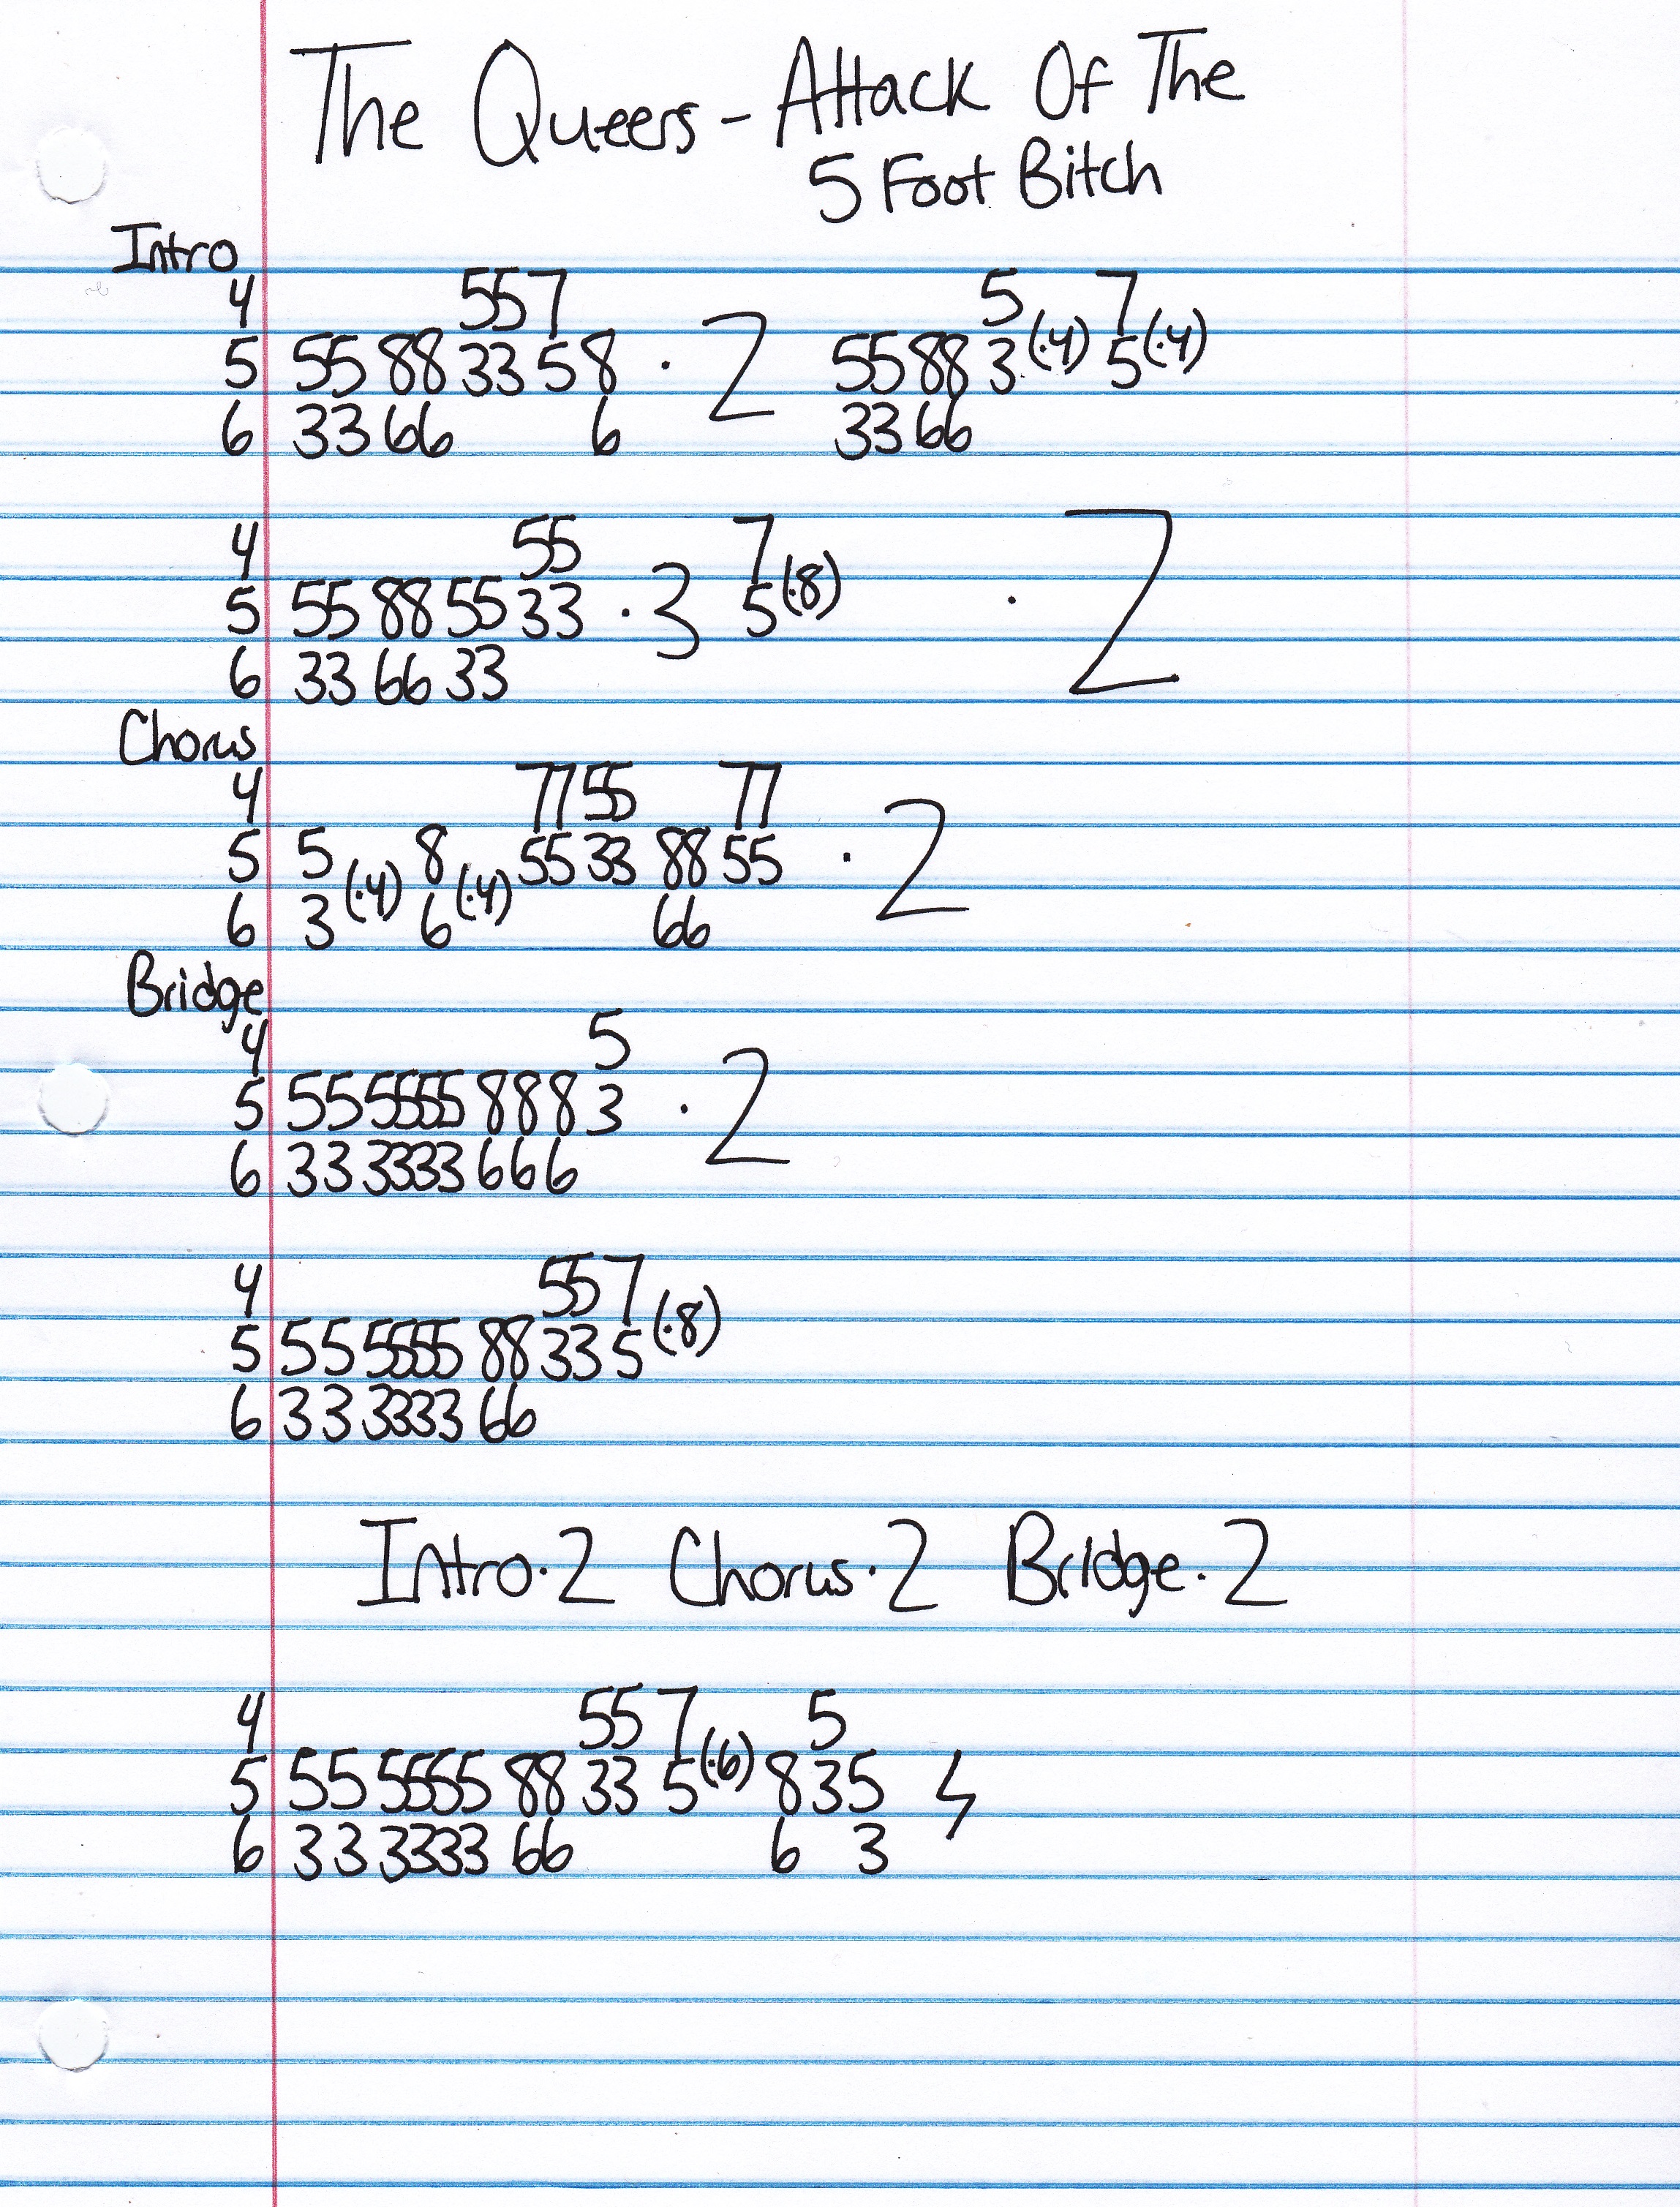 The Queers - Attack Of The
5 Foot Bitch
Intro
4 557 5 7
5 55 88 33 58 · 2 5588 3(·4) 5(·4)
6 33 66 6 33 66
4 55 7
5 55 88 55 33 · 3 5(·8) · 2
6 33 66 33
Chorus
4 77 55 77
5 5(·4) 8(·4) 55 33 88 55 · 2
6 3 6 66
Bridge
4 5
5 55 5555 888 3 · 2
6 33 3333 666
4 55 7
5 55 5555 88 33 5(·8)
6 33 3333 66
Intro·2 Chorus·2 Bridge·2
4 55 7 5
5 55 5555 88 33 5(·6) 835
6 33 3333 66 6 3